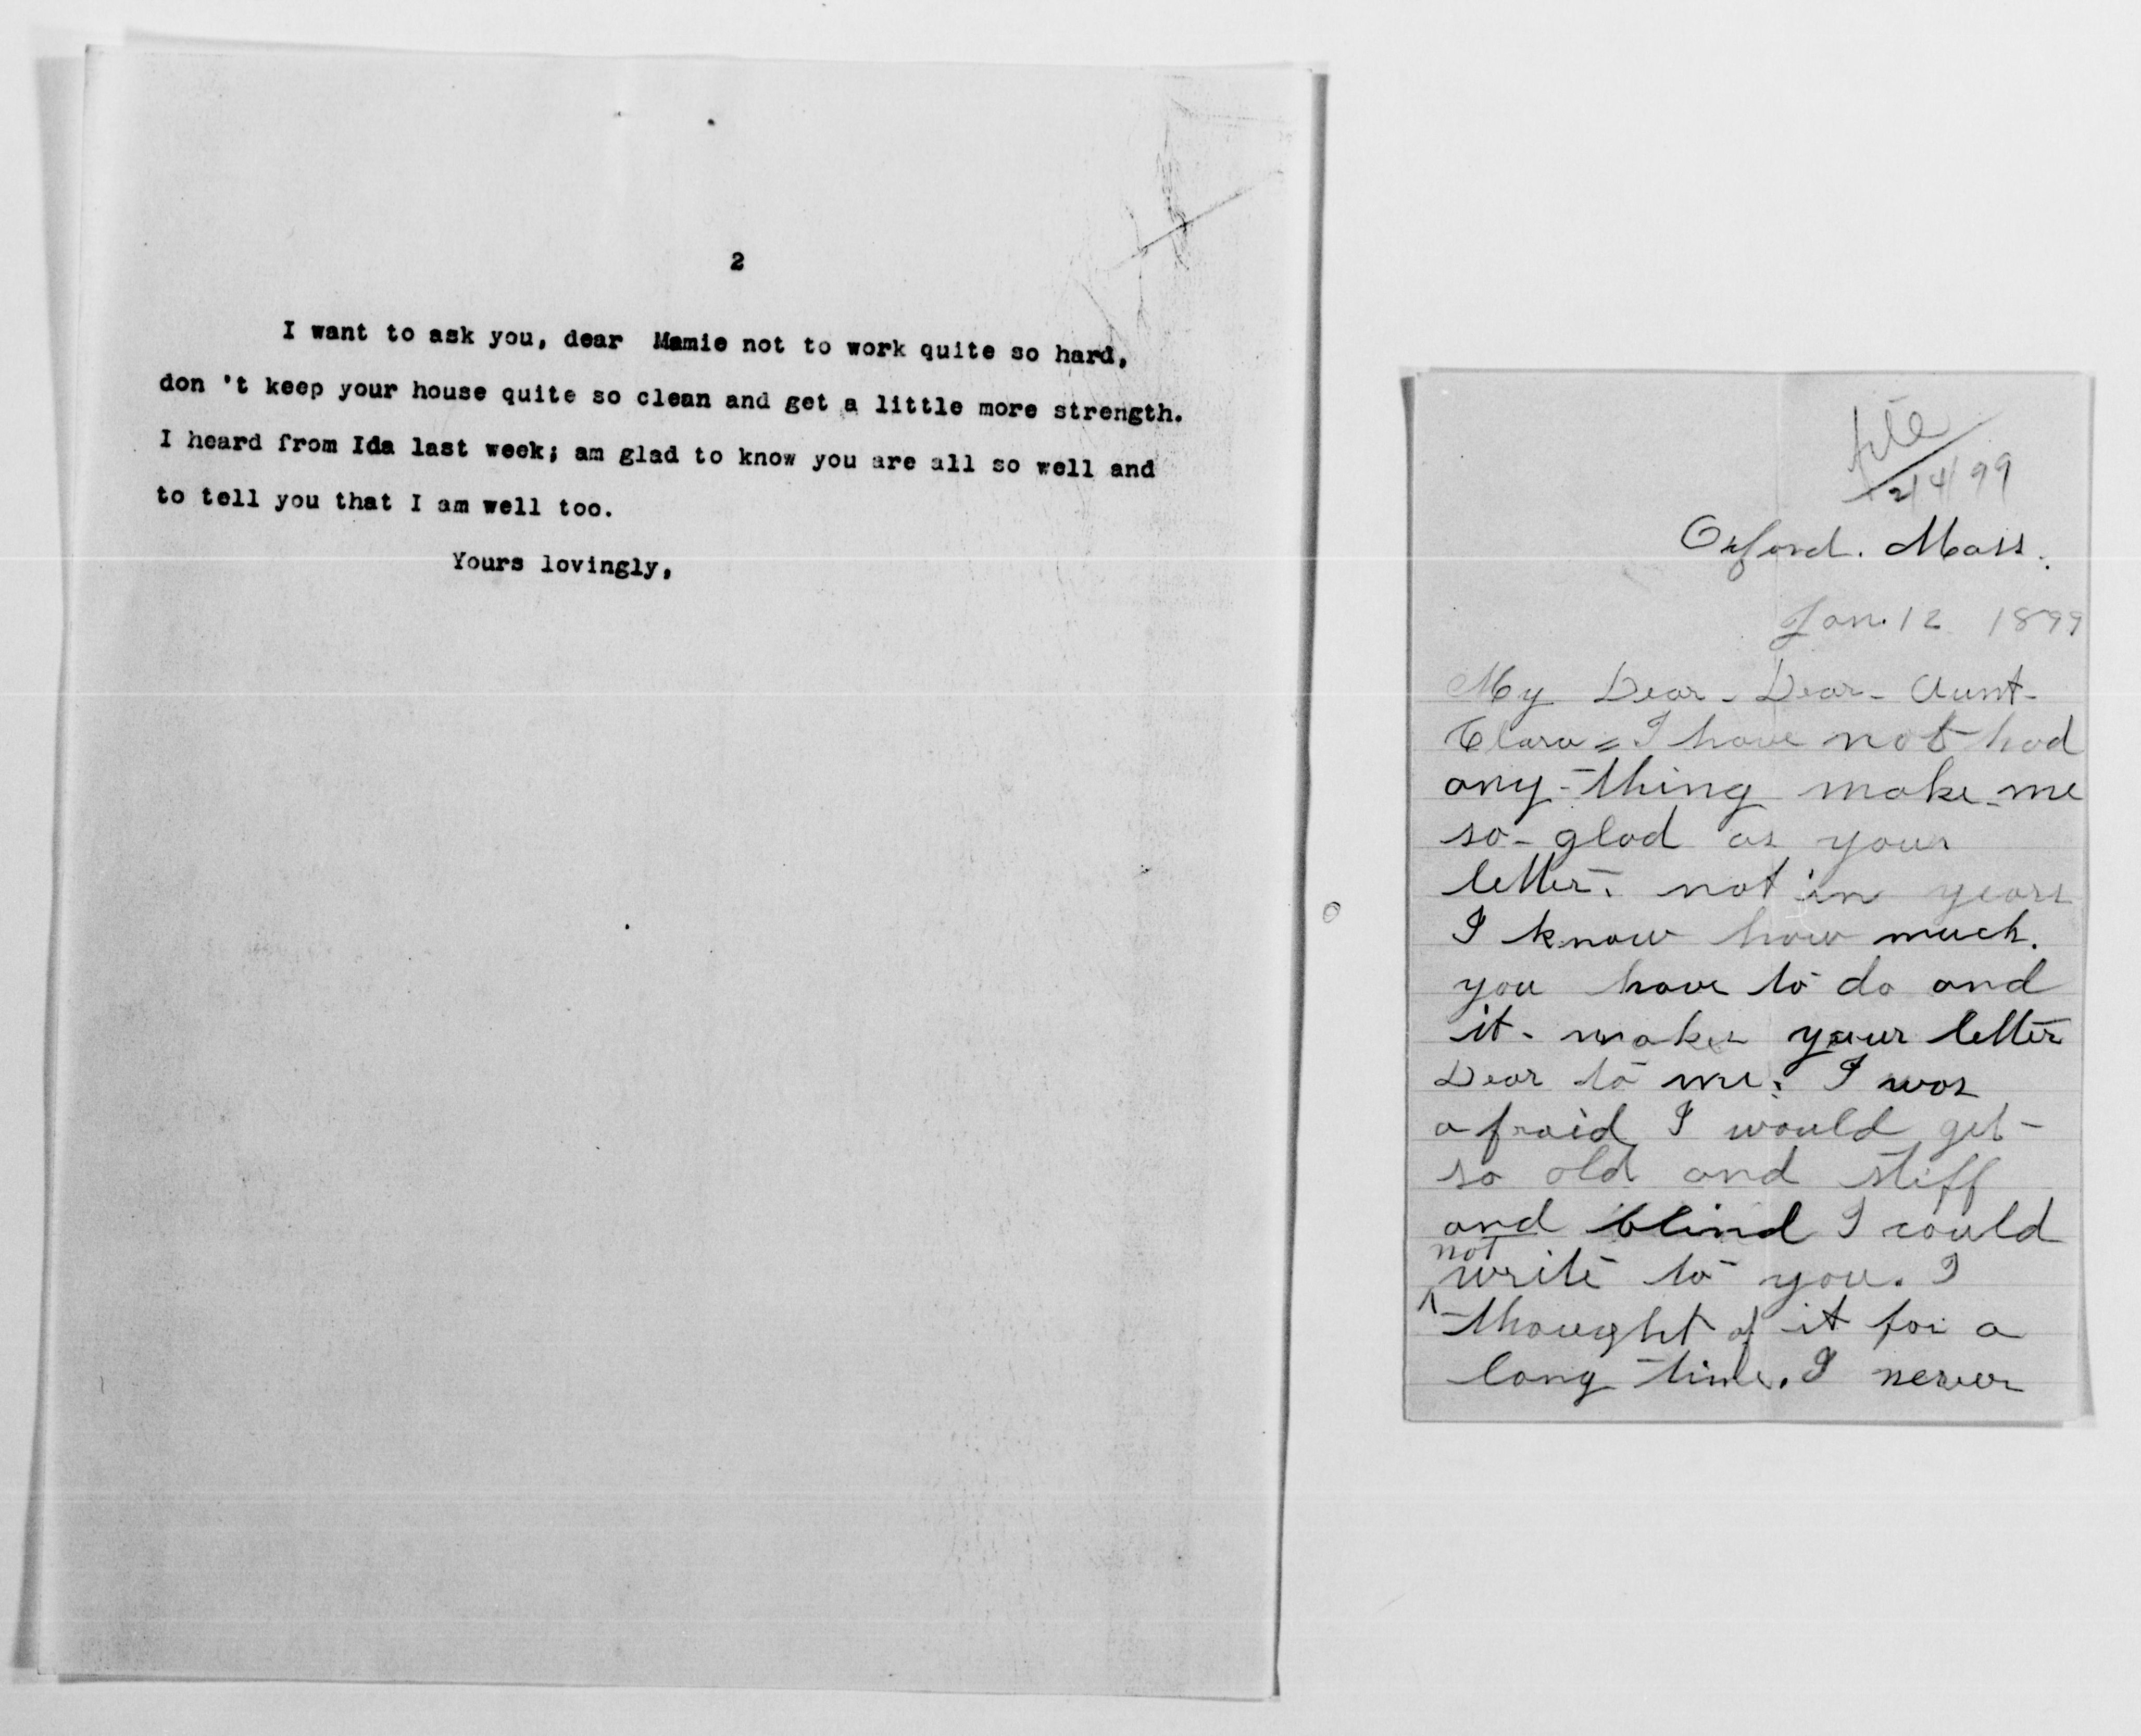 2
I want to ask you, dear  Mamie not to work quite so hard,
don 't keep your house quite so clean and get a little more strength.
I heard from Ida last week; am glad to know you are all so well and
to tell you that I am well too.
Yours lovingly,
file
2/4/99
Oxford. Mass.
Jan. 12 1899
My Dear - Dear - Aunt -
Clara = I have not had
any-thing make me
so - glad as your
letter. not in years
I know how much.
you have to do and
it - makes your letter
Dear to me. I was
afraid I would get -
so old and stiff
and blind I could
not
write to you. I
thought of it for a
long time. I never